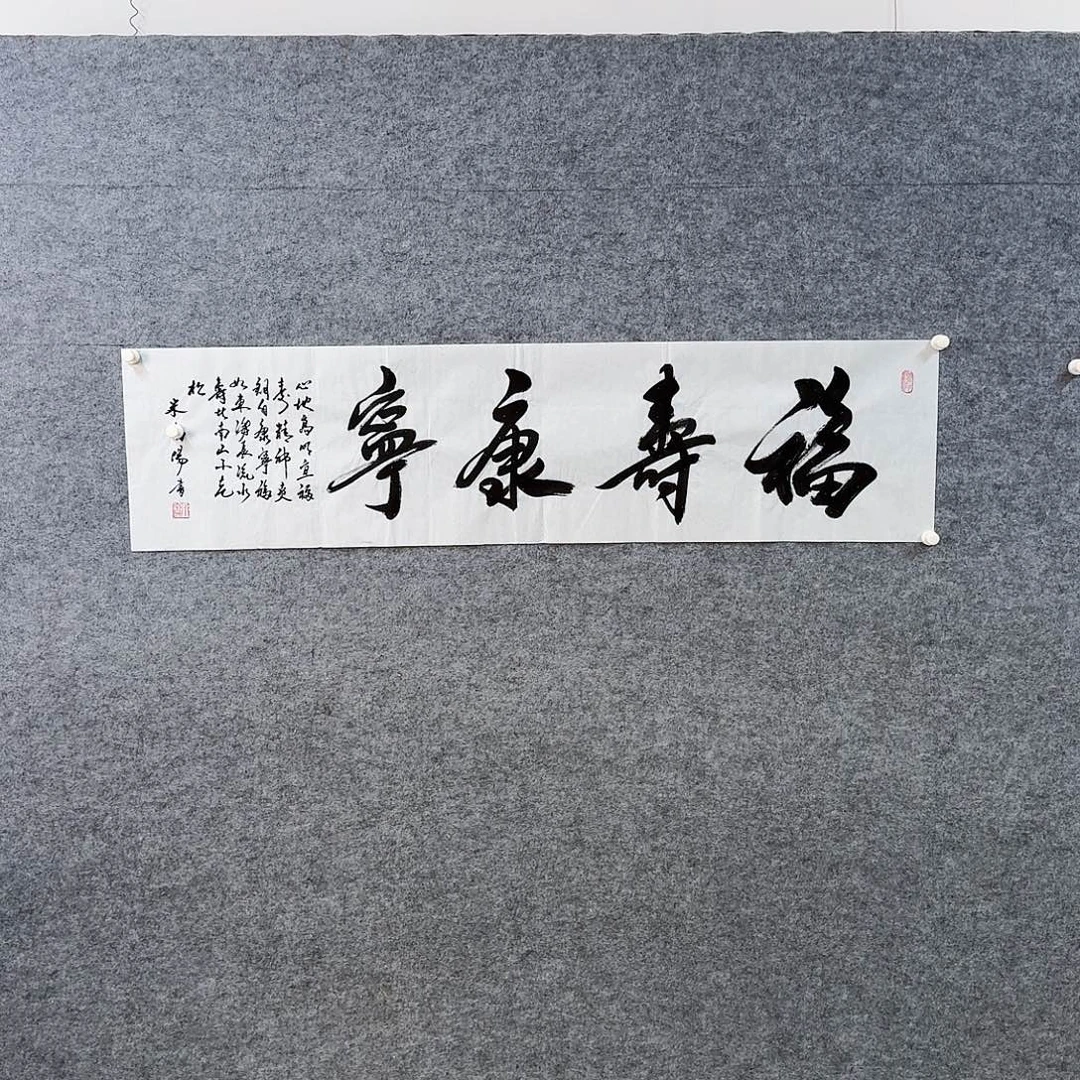 福壽康寧
心地高明宜福
壽精神爽
朗自康寧福
如東海長流水
壽比南山不老
松